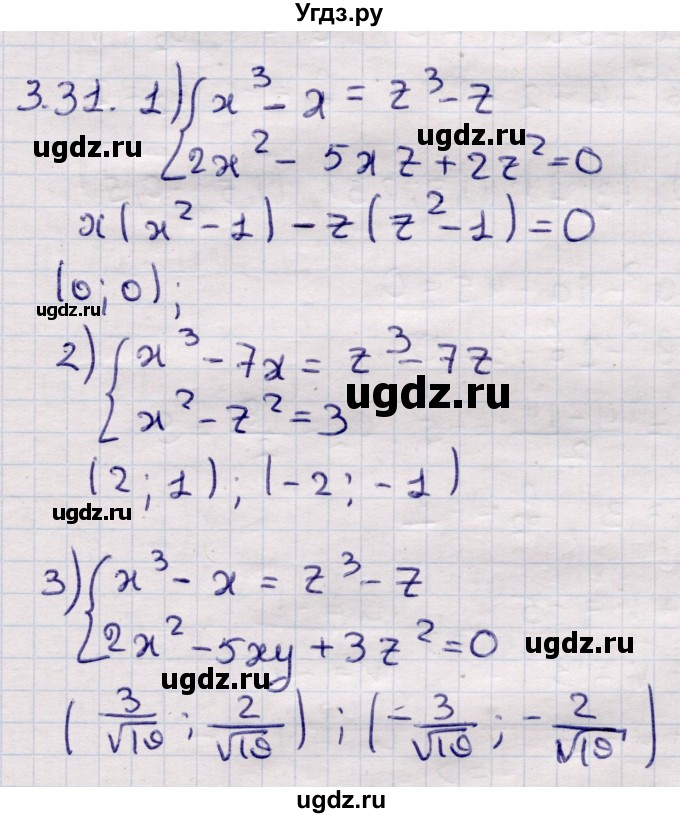 Угдз.ру
3.31. 1) { x³ - x = z³ - z
ugdz.ru
2x² - 5xz + 2z² = 0
x(x² - 1) - z(z² - 1) = 0
(0; 0);
ugdz.ru
2) { x³ - 7x = z³ - 7z
ugdz.ru
x² - z² = 3
(2; 1); (-2; -1)
ugdz.ru
3) { x³ - x = z³ - z
2x² - 5xy + 3z² = 0
ugdz.ru
ugdz.ru
(3/√19; 2/√19); (-3/√19; -2/√19)
ugdz.ru